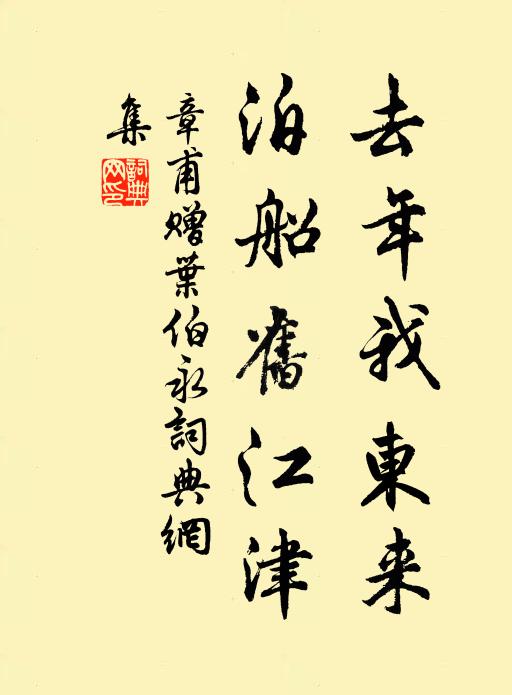 去年我東来
泊船舊江津
章甫贈葉伯永詞典網
集
詞典網印